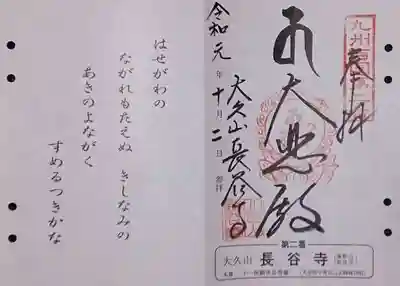 奉拝
大悲殿
大久山長谷寺
令和元年十月二日 参拝
第二番
大久山 長谷寺
はせがわの
ながれもたえぬ きしなみの
あきのよながく
すめるつきかな